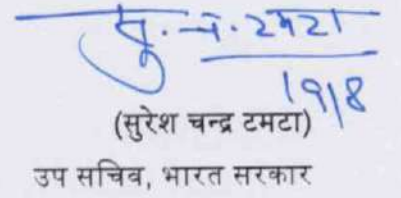 सु. च. टमटा
19/8
(सुरेश चन्द्र टमटा)
उप सचिव, भारत सरकार